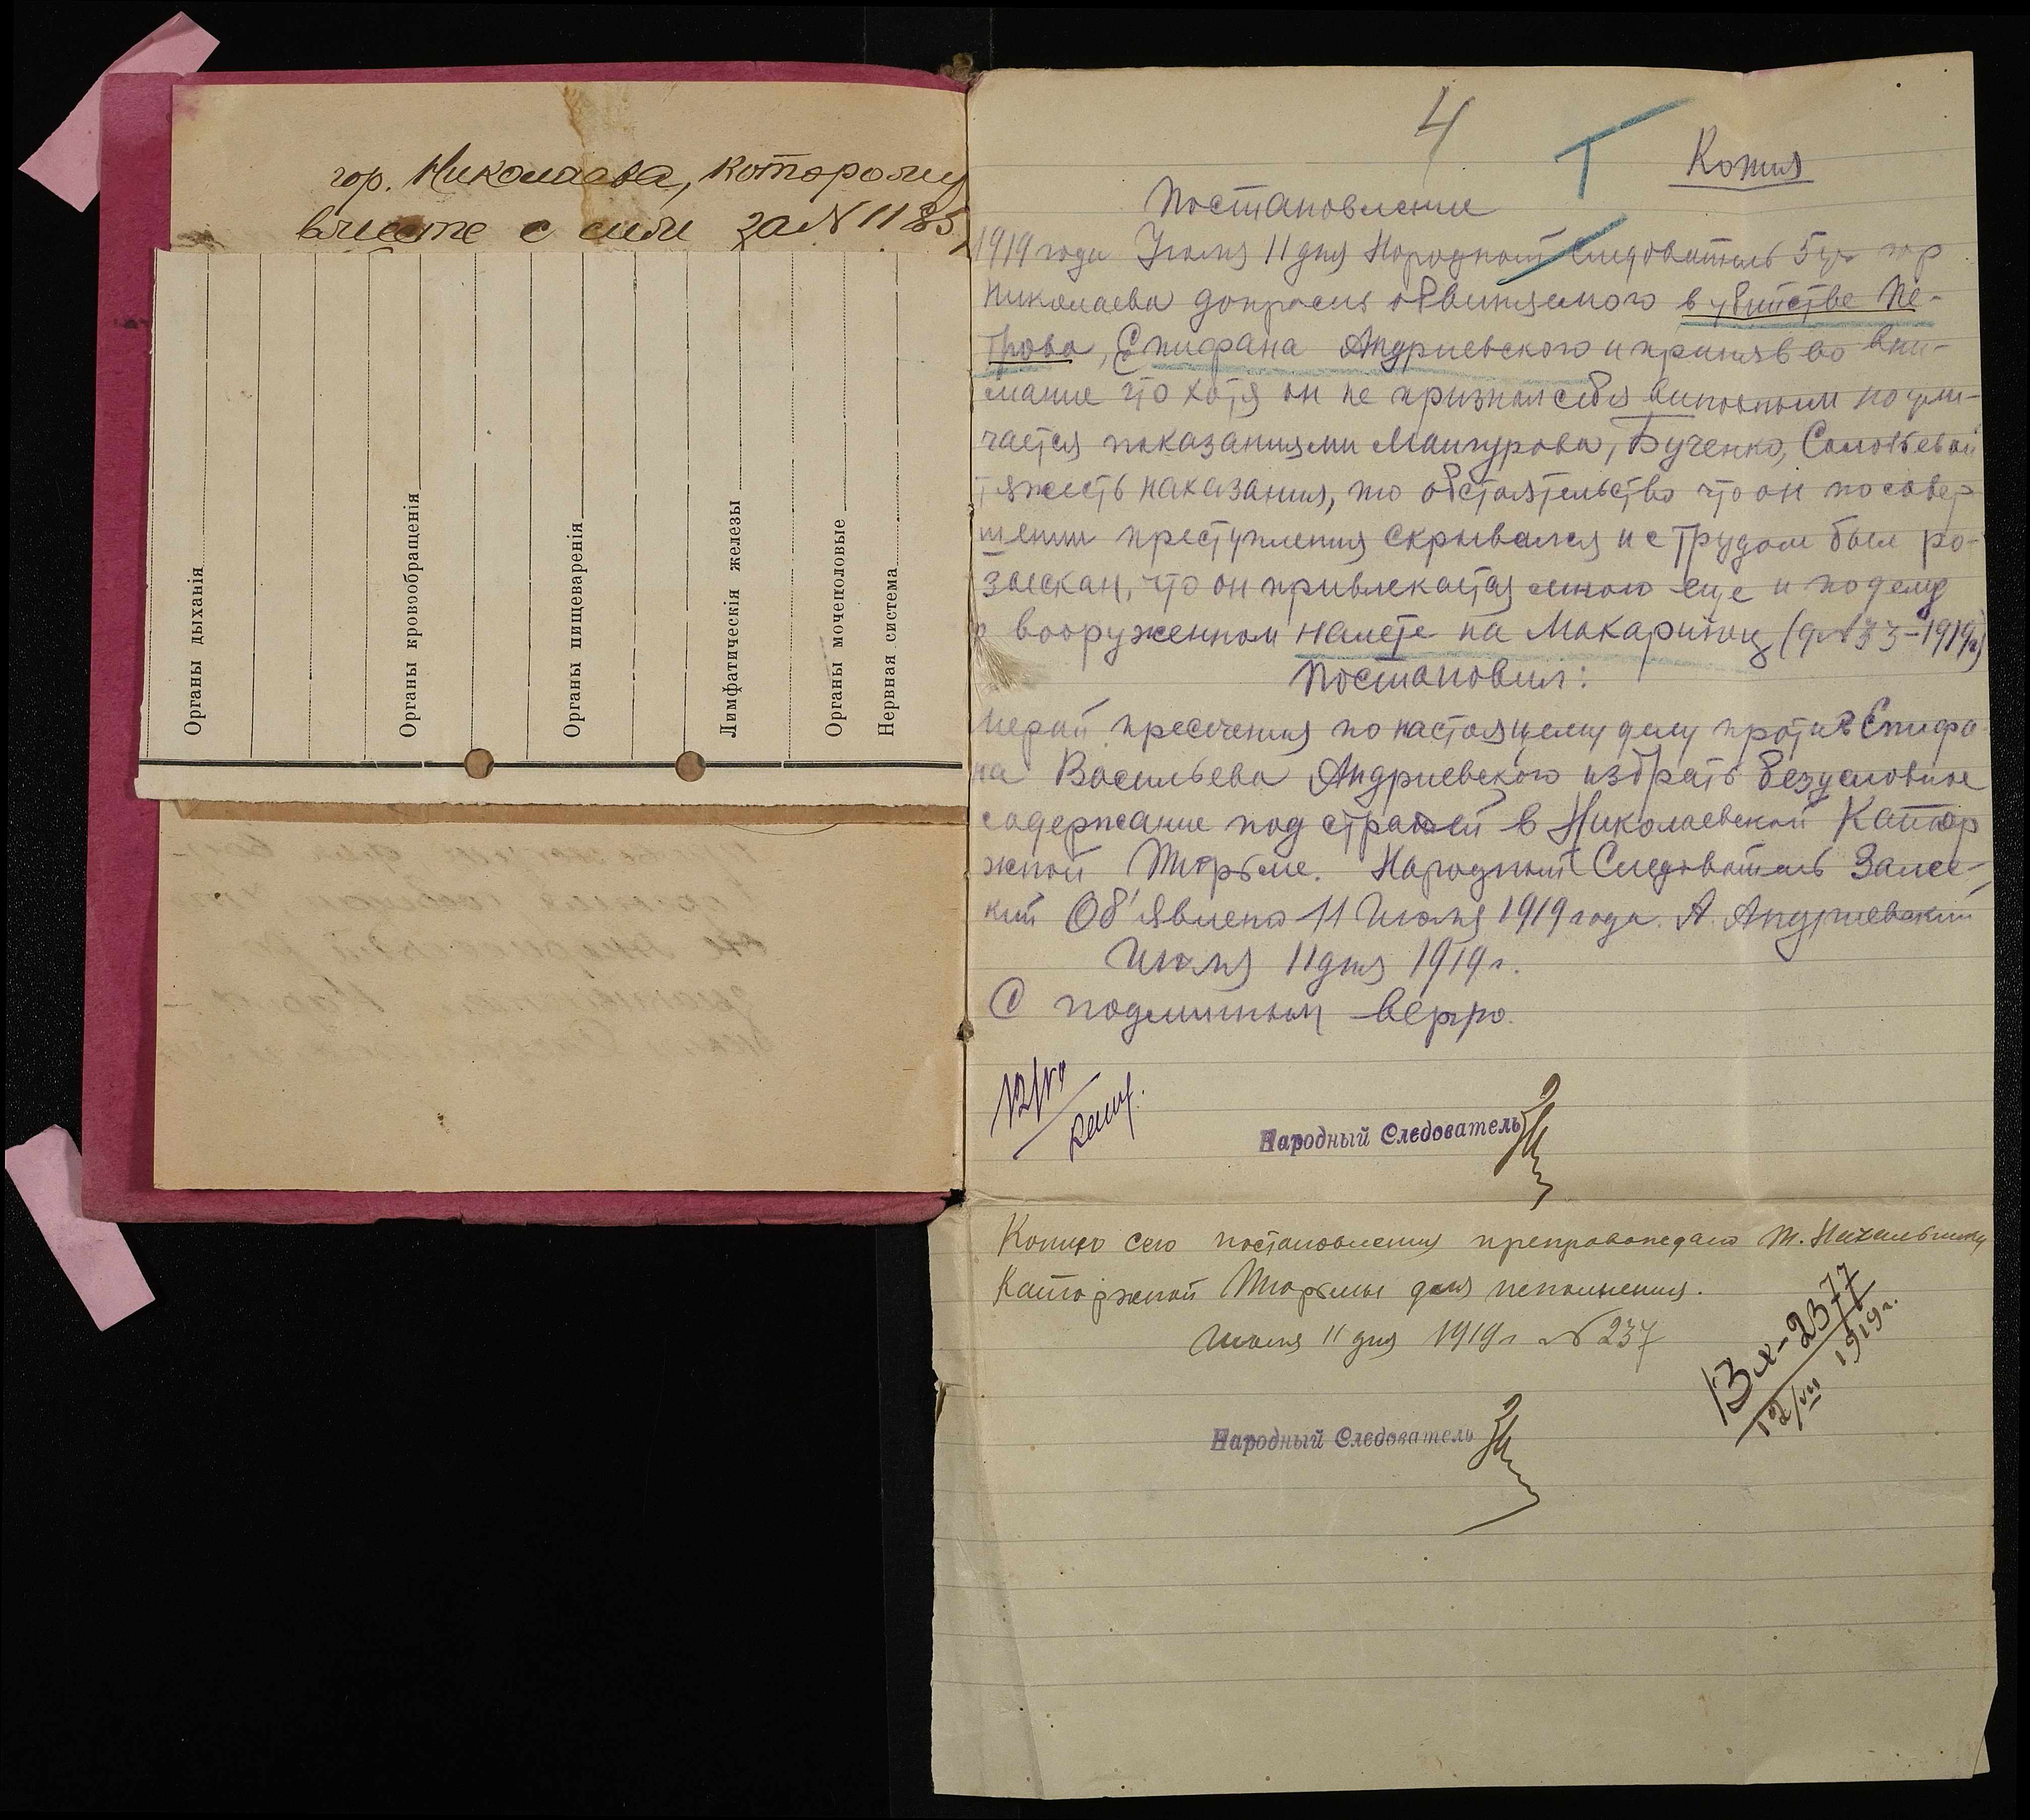 гор. Николаева, которому
вместе с сим за № 1185
Органы дыханія
Органы кровообращенія
Органы пищеваренія
Лимфатическія железы
Органы мочеполовые
Нервная система
4
Т
Копия
Постановление
1919 года Июля 11 дня Народный Следователь 5 уч гор
Николаева допросив обвиняемого в убийстве Пе-
трова, Епифана Андриевского и приняв во вни-
мание что хотя он не признал себя виновным но ули-
чается показаниями Мангурова, Бученко, Соловьевой
тяжесть наказания, то обстоятельство что он по совер
шении преступления скрывался и с трудом был ро-
зыскан, что он привлекается мною еще и по делу
о вооруженном налете на (д № 33-1919г)
Постановил:
мерой пресечения по настоящему делу против Епифа
на Васильева Андриевского избрать безусловное
содержание под стражей в Николаевской Катор
жной Тюрьме. Народный Следователь Залес-
кий Об'явлено 11 Июля 1919 года. А. Андриевский
Июля 11 дня 1919 г.
С подлинным верно.
Народный Следователь
Копию сего постановления препровождаю т. Начальнику
Каторжной Тюрьмы для исполнения.
Июля 11 дня 1919 г № 237
2377
12/VII 1919 г.
Народный Следователь